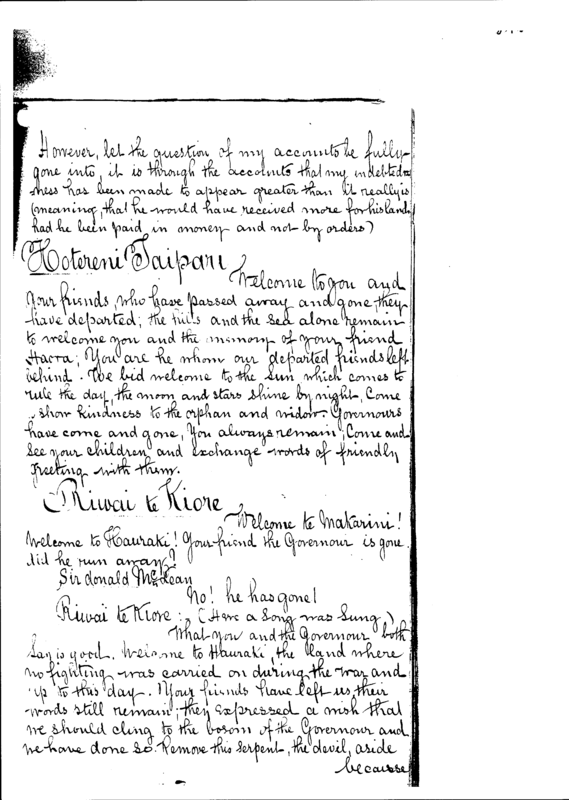 However, let the question of my accounts be fully
gone into, it is through the accounts that my indebted
ness has been made to appear greater than it really is
(meaning, that he would have received more for his land
had he been paid in money and not by orders)
Hotereni Taipari
Welcome to you and
Your friends, who have passed away and gone, they
have departed; the hills and the sea alone remain
to welcome you and the memory of your friend
You are he whom our departed friends left
behind. We bid welcome to the sun which comes to
rule the day, the moon and stars shine by night, Come
show kindness to the orphan and widow. Governours
have come and gone, You always remain; Come and
see your children and exchange words of friendly
greeting with them.
Riwai te Kiore
Welcome te Makarini!
Welcome to Hauraki! Your friend the Governour is gone.
did he run away?
Sir donald McLean
No! he has gone!
Riwai te Kiore: (Here a Song was Sung)
What you and the Governour both
say is good. Welcome to Hauraki, the land where
no fighting was carried on during the war and
up to this day. Your friends have left us their
words still remain; they expressed a wish that
we should cling to the bosom of the Governour and
we have done so. Remove this serpent, the devil, aside
because